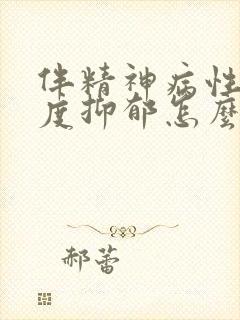 伴精神病性
度抑郁怎麼
郝蕾